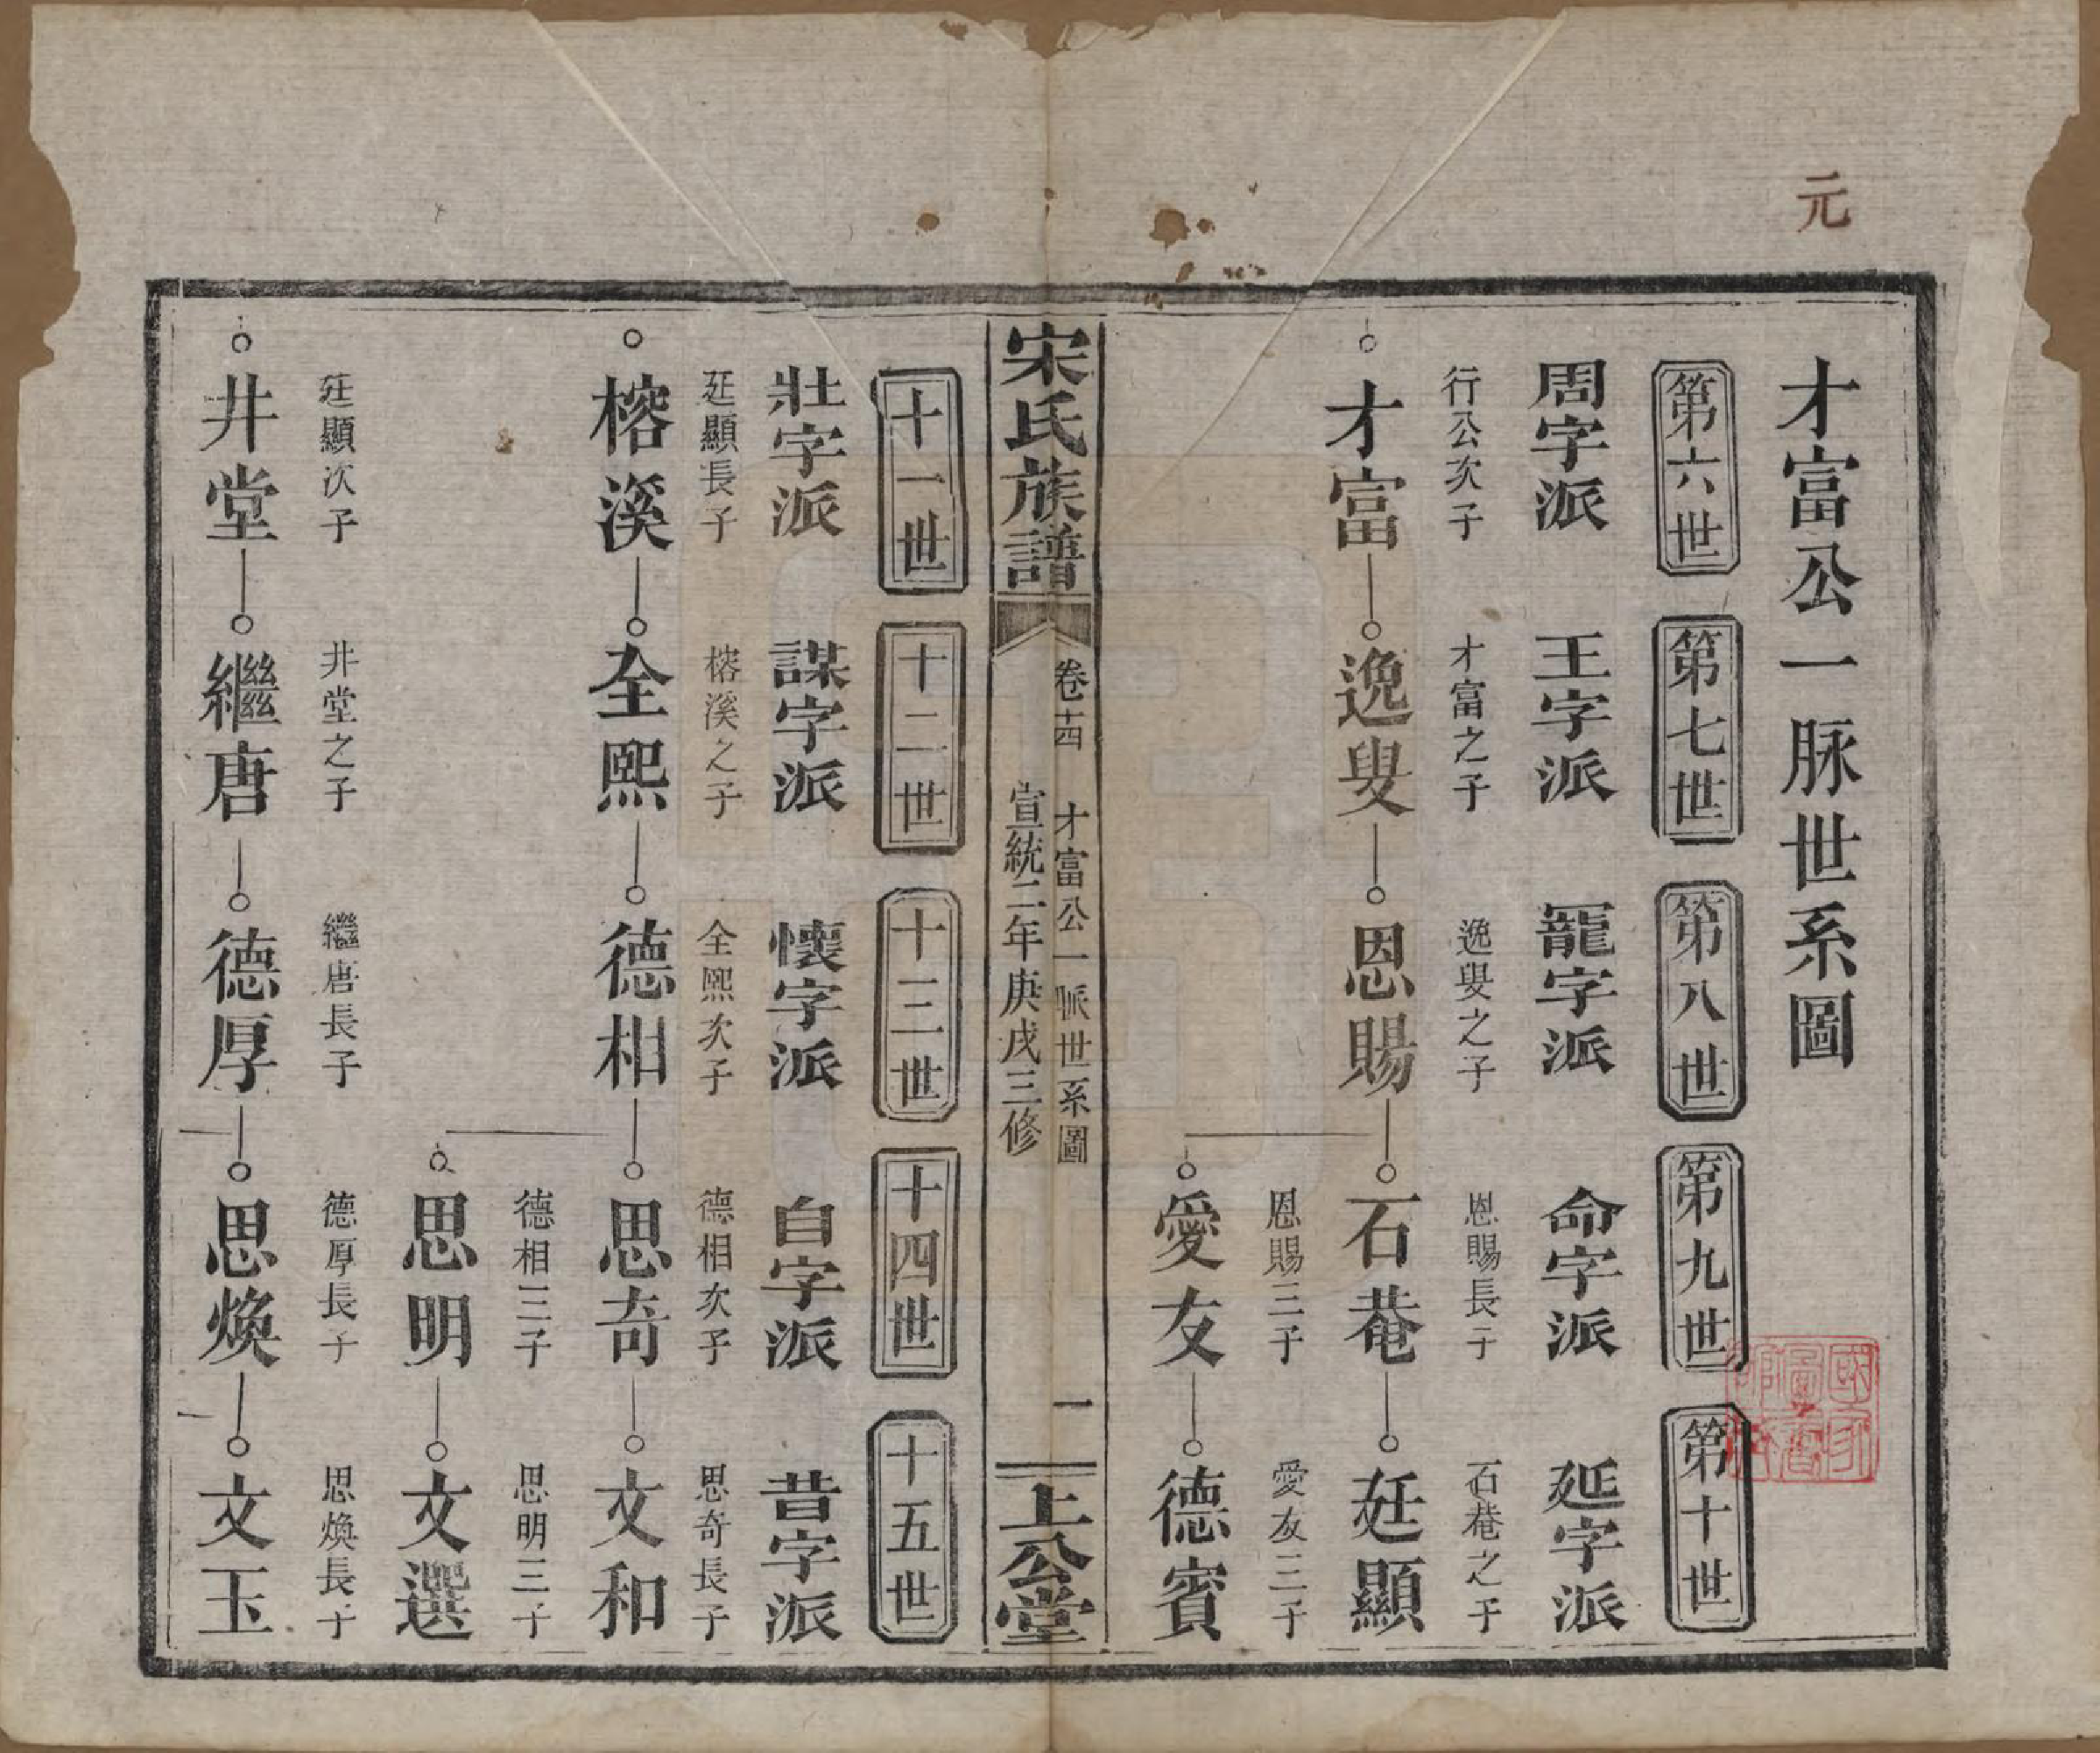 元
才富公一脉世系圖
第六世 第七世 第八世 第九世 第十世
周字派 王字派 寵字派 命字派 延字派
行公次子 才富之子 逸叟之子 恩賜長子 石菴之子
才富 逸叟 恩賜 石菴 廷顯
恩賜三子 愛友三子
愛友 德賓
宋氏族譜
卷十四 才富公一脈世系圖 一
宣統二年庚戌三修
上公堂
十一世 十二世 十三世 十四世 十五世
壯字派 謀字派 懷字派 自字派 昔字派
廷顯長子 榕溪之子 全熙次子 德相次子 思奇長子
榕溪 全熙 德相 思奇 文和
德相三子 思明三子
思明 文選
廷顯次子 井堂之子 繼唐長子 德厚長子 思煥長子
井堂 繼唐 德厚 思煥 文玉